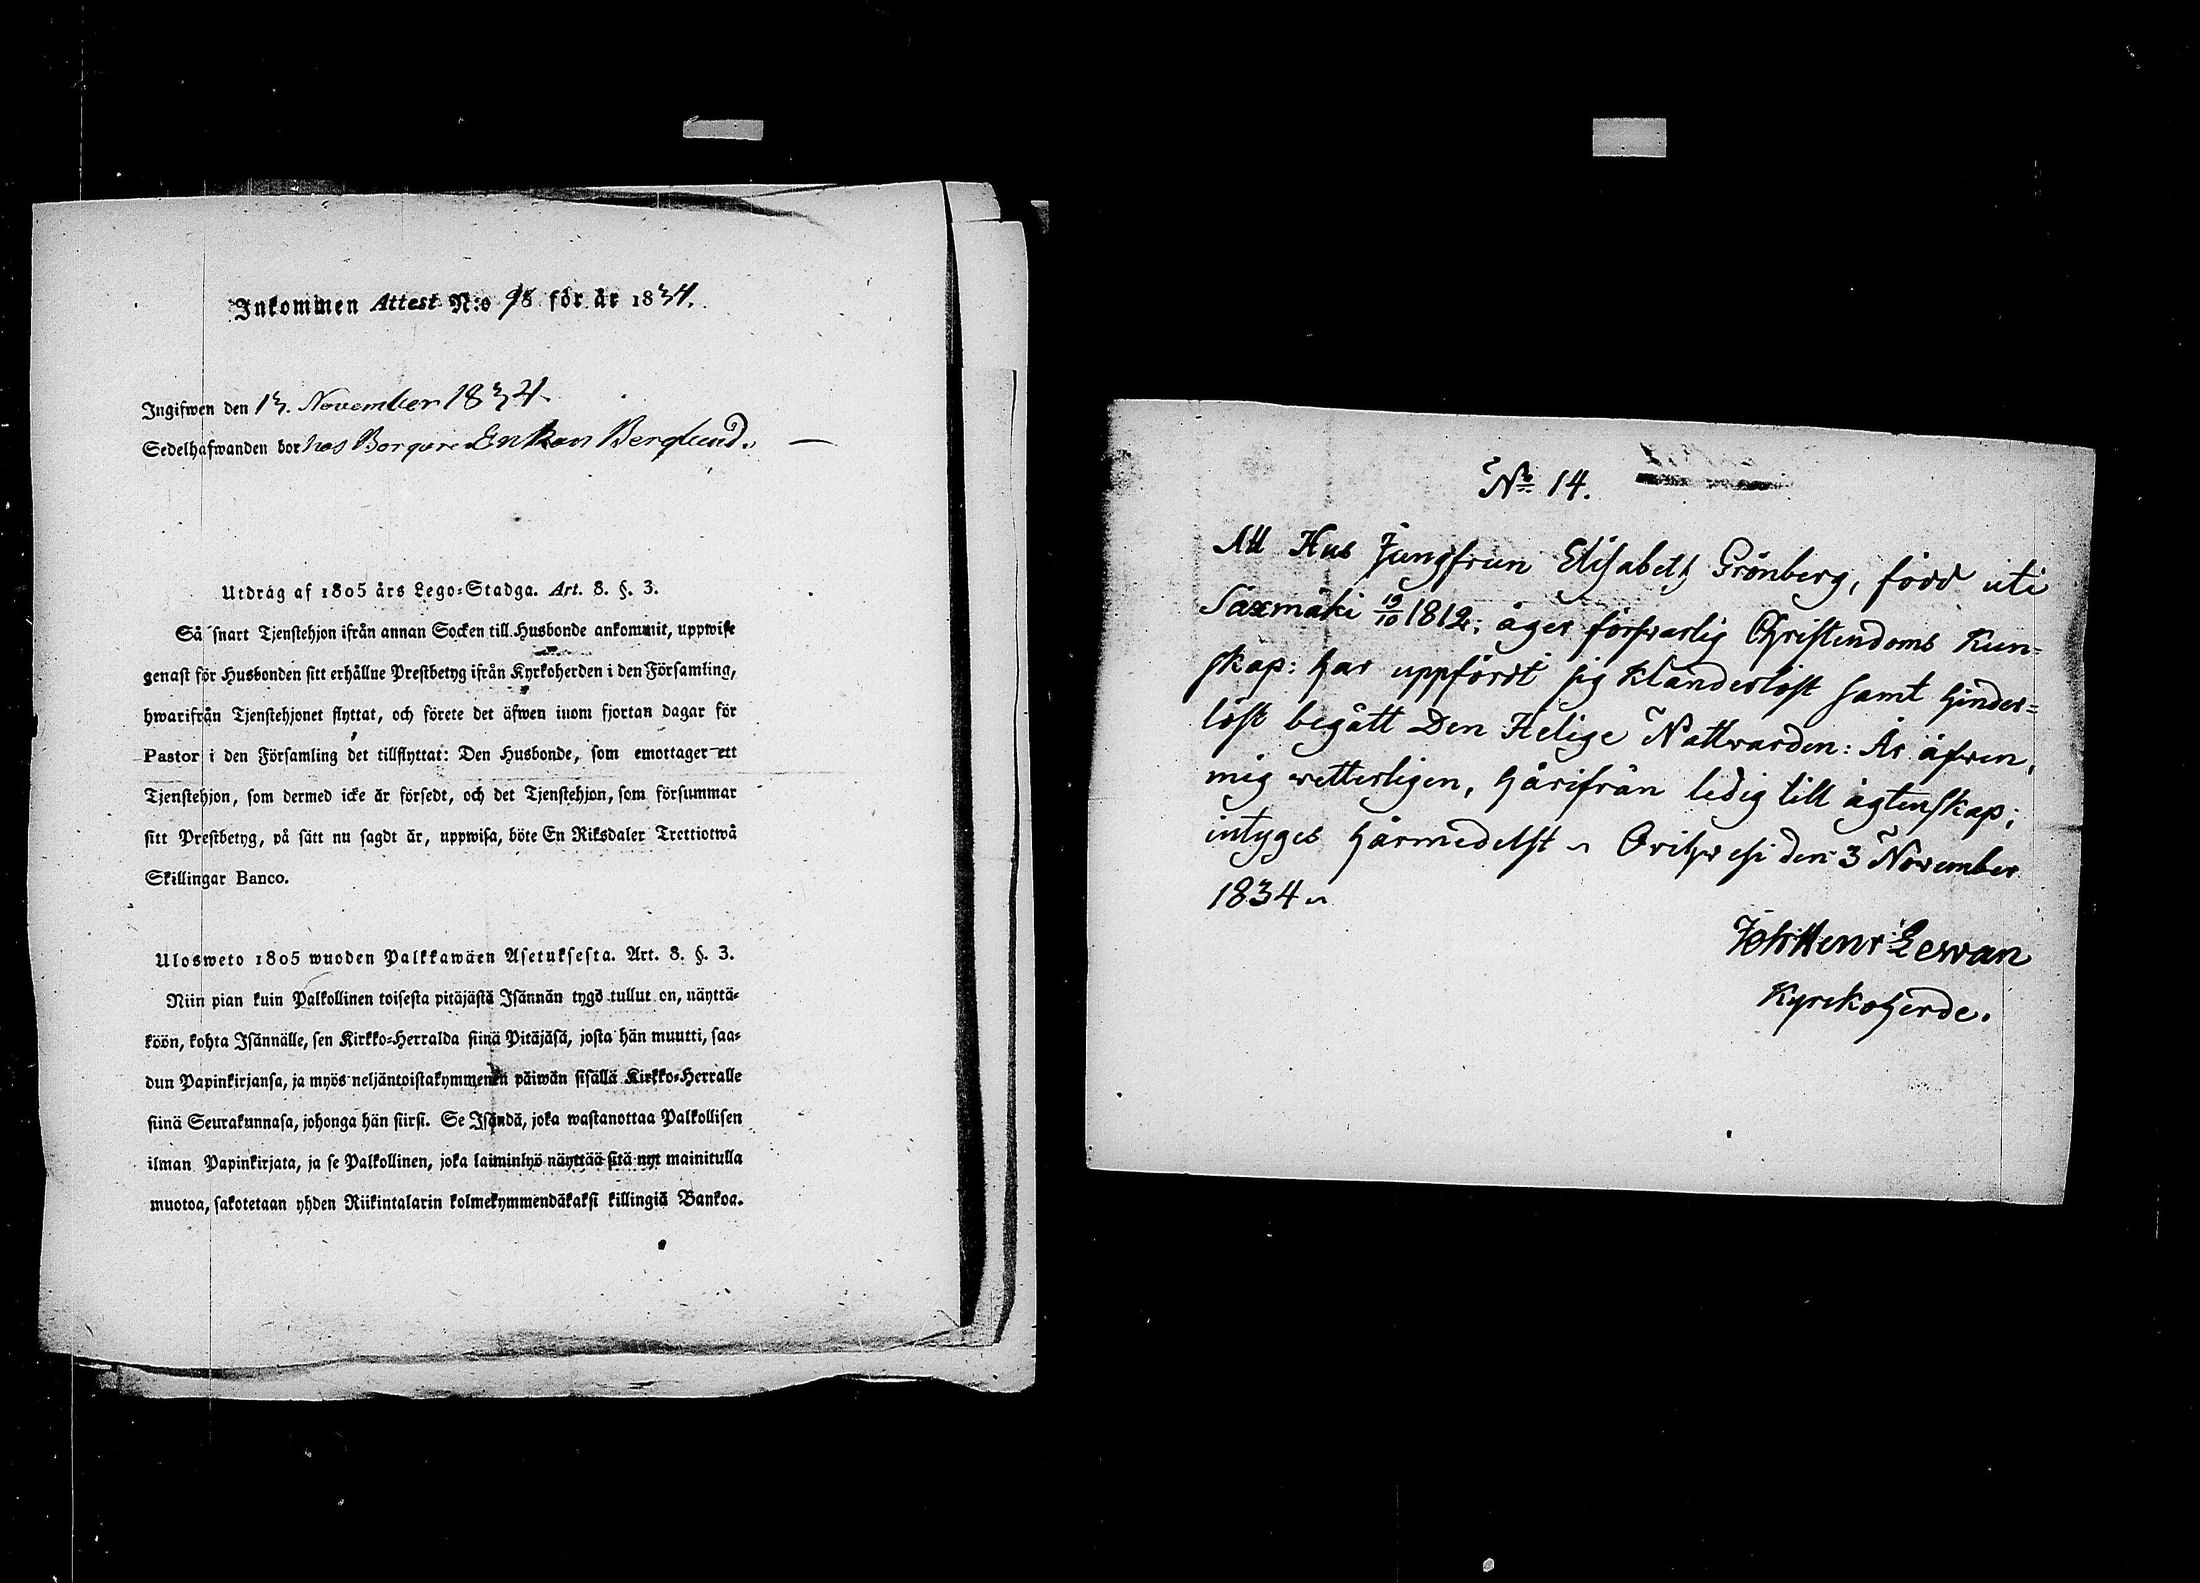 Inkommen Attest N:o 98 för år 1834.
Ingifwen den 13. November 1834.
Sedelhafwanden bor hos Borgare Enkan Berglund. —
Utdrag af 1805 års Lego-Stadga. Art. 8. §. 3.
Så snart Tjenstehjon ifrån annan Socken till Husbonde ankommit, uppwise
genast för Husbonden sitt erhållne Prestbetyg ifrån Kyrkoherden i den Församling,
hwarifrån Tjenstehjonet flyttat, och förete det äfwen inom fjortan dagar för
Pastor i den Församling det tillflyttat: Den Husbonde, som emottager ett
Tjenstehjon, som dermed icke är försedt, och det Tjenstehjon, som försummar
sitt Prestbetyg, på sätt nu sagdt är, uppwisa, böte En Riksdaler Trettiotwå
Skillingar Banco.
Ulosweto 1805 wuoden Palkkawäen Asetuksesta. Art. 8. §. 3.
Niin pian kuin Palkollinen toisesta pitäjästä Isännän tygö tullut on, näyttä-
köön, kohta Isännälle, sen Kirkko-Herralda siinä Pitäjäsä, josta hän muutti, saa-
dun Papinkirjansa, ja myös neljäntoistakymmenen päiwän sisällä Kirkko-Herralle
siinä Seurakunnasa, johonga hän siirsi. Se Isändä, joka wastanottaa Palkollisen
ilman Papinkirjata, ja se Palkollinen, joka laiminlyö näyttää sitä nyt mainitulla
muotoa, sakotetaan yhden Riikintalarin kolmekymmendäkaksi killingiä Bankoa.
No 14.
Att Hus Jungfrun Elisabeth Grönberg, född uti
Saxmäki 19/10 1812; äger försvarlig Christendoms Kun-
skap: har uppfördt sig klanderlöst samt hinder-
löst begått Den Helige Nattvarden: Är äfven,
mig vetterligen, härifrån ledig till ägtenskap;
intyges härmedelst ~ Orihvesi den 3 November
1834 ~
Joh: Henr: Lewan
Kyrckoherde.